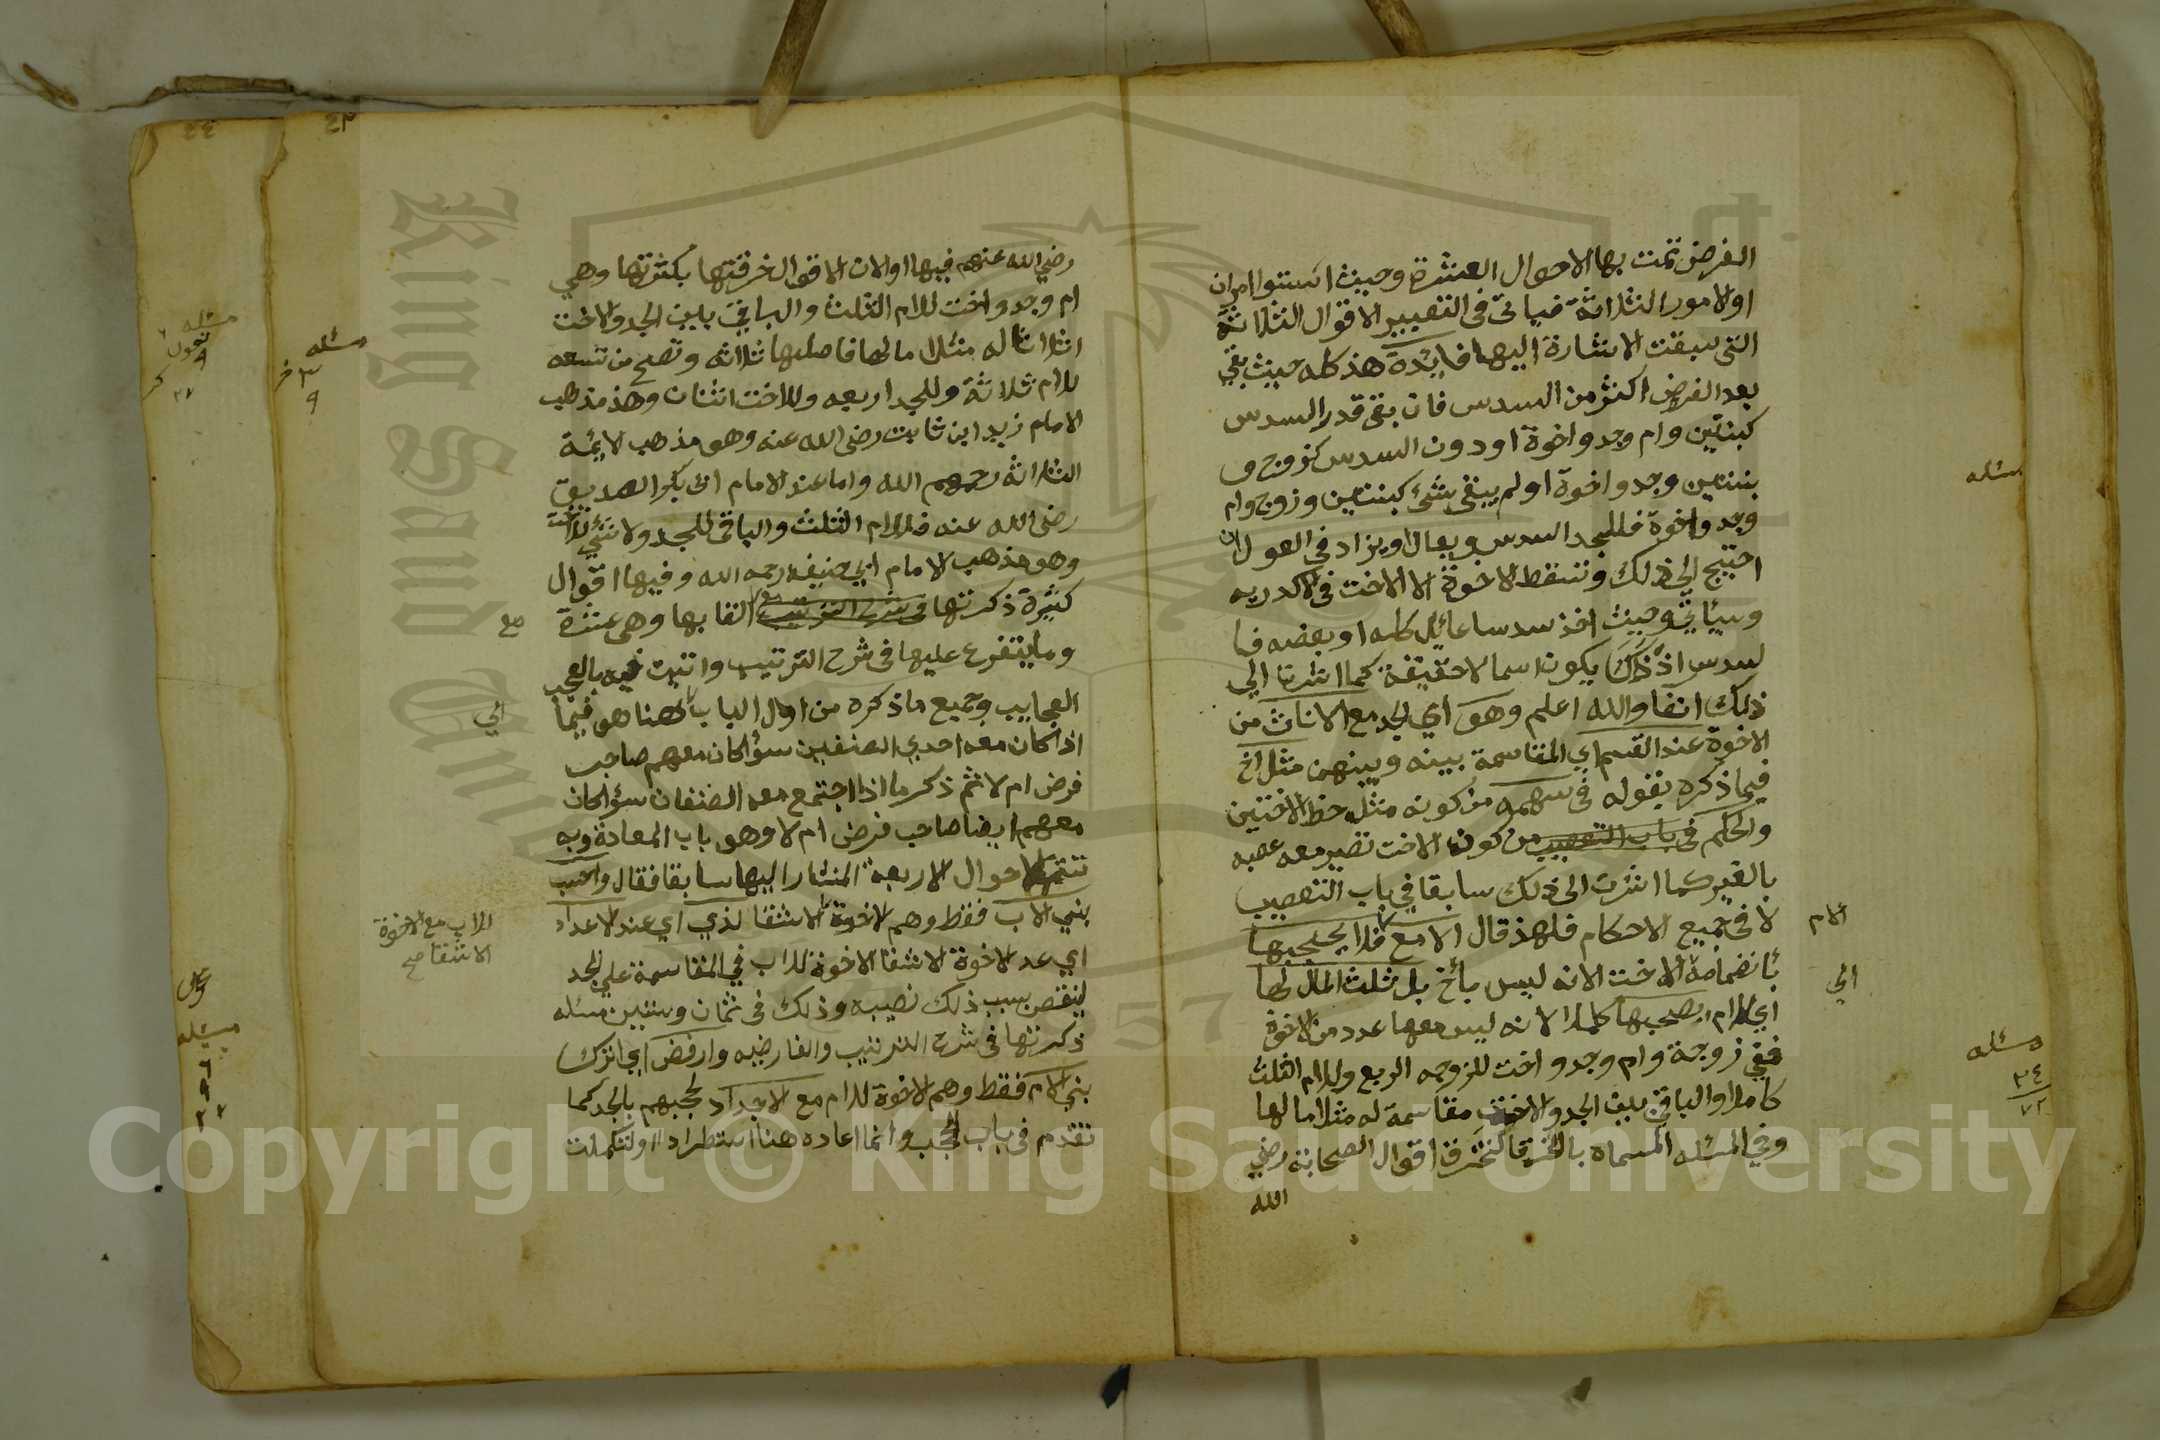 الفرض تمت بها الاحوال العشرة وحيث استوا امران
اولامور الثلاثة فياتي في التعبير الاقوال الثلاثة
التي سبقت الاشارة اليها فايدة هذ كله حيث بقي
بعد الفرض اكثر من السدس فان بقي قدر السدس
كبنتين وام وجد واخوة او دون السدس كزوج و
بنتين وجد واخوة او لم يبقى شئ كبنتين وزوج وام
وجد واخوة فللجد السدس ويعال او يزاد في العول ان
احتيج الي ذلك وتسقط الاخوة الا الاخت في الاكدريه
وسياتي وحيث اخذ سدسا عائل كله او بعضه فا
لسدس اذ ذاك يكون اسما لا حقيقة كما اشرت الي
ذلك انفا والله اعلم وهو اي الجد مع الاناث من
الاخوة عند القسم اي المقاسمة بينه وبينهن مثل اخ
فيما ذكره بقوله في سهمه من كونه مثل حظ الاختين
والحكم في باب التعصيب من كون الاخت تصير معه عصبه
بالغير كما اشرت الى ذلك سابقا في باب التعصيب
لا في جميع الاحكام فلهذ قال الا مع فلا يحجبها
بانضمامه للاخت لانه ليس بأخ بل ثلث المال لها
اي للام يصحبها كاملا لانه ليس معها عدد من الاخوة
ففي زوجة وام وجد واخت للزوجه الربع وللام الثلث
كاملا والباقي بين الجد والاخت مقاسمة له مثلا مالها
وفي المسئله المسماة بالخرقا لتخرق اقوال الصحابة رضي
الله
مسئله
الام
الي
مسئله
٣٤
٧٢
رضي الله عنهم فيها اولان الاقوال خرقتها بكثرتها وهي
ام وجد واخت للام الثلث والباقي بين الجد والاخت
اثلاثا له مثلا مالها فاصلها ثلاثه وتصح من تسعه
للام ثلاثة وللجد اربعه وللاخت اثنان وهذ مذهب
الامام زيد ابن ثابت رضي الله عنه وهو مذهب الايمة
الثلاثة رحمهم الله واما عند الامام ابي بكر الصديق
رضي الله عنه فللام الثلث والباقي للجد ولا شئي للاخت
وهو مذهب الامام ابي حنيفة رحمه الله وفيها اقوال
كثيرة ذكرتها في شرح الترتيب القابها وهي عشرة
وما يتفرع عليها في شرح الترتيب واتيت فيه بالعجب
العجايب وجميع ما ذكره من اول الباب لهنا هو فيما
اذا كان معه احدي الصنفين سؤ كان معهم صاحب
فرض ام لا ثم ذكر ما اذا اجتمع معه الصنفان سؤ كان
معهم ايضا صاحب فرض ام لا وهو باب المعادة وبه
تتم الاحوال الاربعة المشار اليها سابقا فقال واحسب
بني الاب فقط وهم الاخوة الاشقا لدي اي عند الاعداد
اي عد الاخوة الاشقا الاخوة للاب في المقاسمة علي الجد
لينقص بسبب ذلك نصيبه وذلك في ثمان وستين مسئله
ذكرتها في شرح الترتيب والفارضيه وارفض اي اترك
بني الام فقط وهم الاخوة للام مع الاجداد لحجبهم بالجد كما
تقدم في باب الحجب وانما اعاده هنا استطرادا ولتكملت
صح
الي
للاب مع الاخوة
الاشقا صح
مسئله
٣
٩
مسئله
تعول
٩
٢٧
مسئله
٦
٩
٢٧
٤٣
٤٤
King Saud University
1957
Copyright © King Saud University